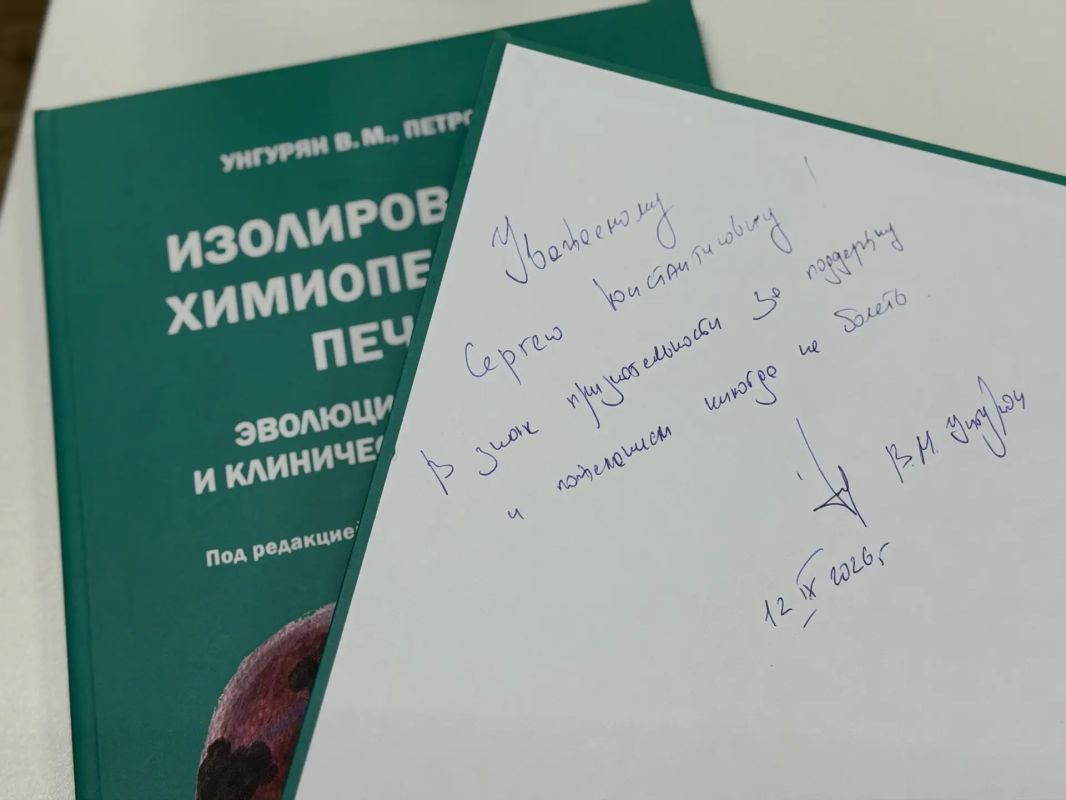 УНГУРЯН В. М., ПЕТРО
ИЗОЛИРОВ
ХИМИОПЕ
ПЕЧ
ЭВОЛЮЦИ
И КЛИНИЧЕС
Под редакцией
Уважаемому
Сергею Константиновичу !
В знак признательности за поддержку
и пожеланием никогда не болеть.
В.М. Унгурян
12 IX 2026 г